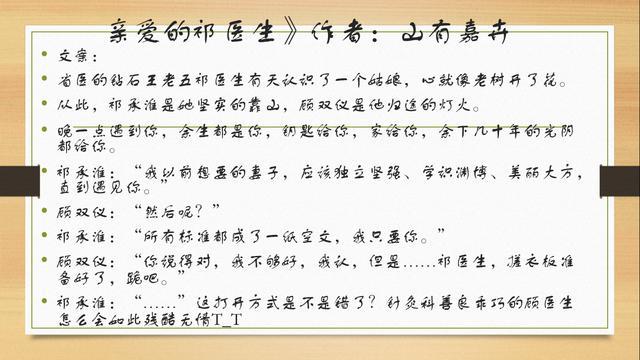 亲爱的祁医生》作者：山有嘉卉
文案：
省医的钻石王老五祁医生有天认识了一个姑娘，心就像老树开了花。
从此，祁承淮是她坚实的靠山，顾双仪是他归途的灯火。
晚一点遇到你，余生都是你，钥匙给你，家给你，余下几十年的光阴
都给你。
祁承淮：“我以前想要的妻子，应该独立坚强、学识渊博、美丽大方，
直到遇见你。”
顾双仪：“然后呢？”
祁承淮：“所有标准都成了一纸空文，我只要你。”
顾双仪：“你说得对，我不够好，我认，但是……祁医生，搓衣板准
备好了，跪吧。”
祁承淮：“……”这打开方式是不是错了？针灸科善良乖巧的顾医生
怎么会如此残酷无情T_T